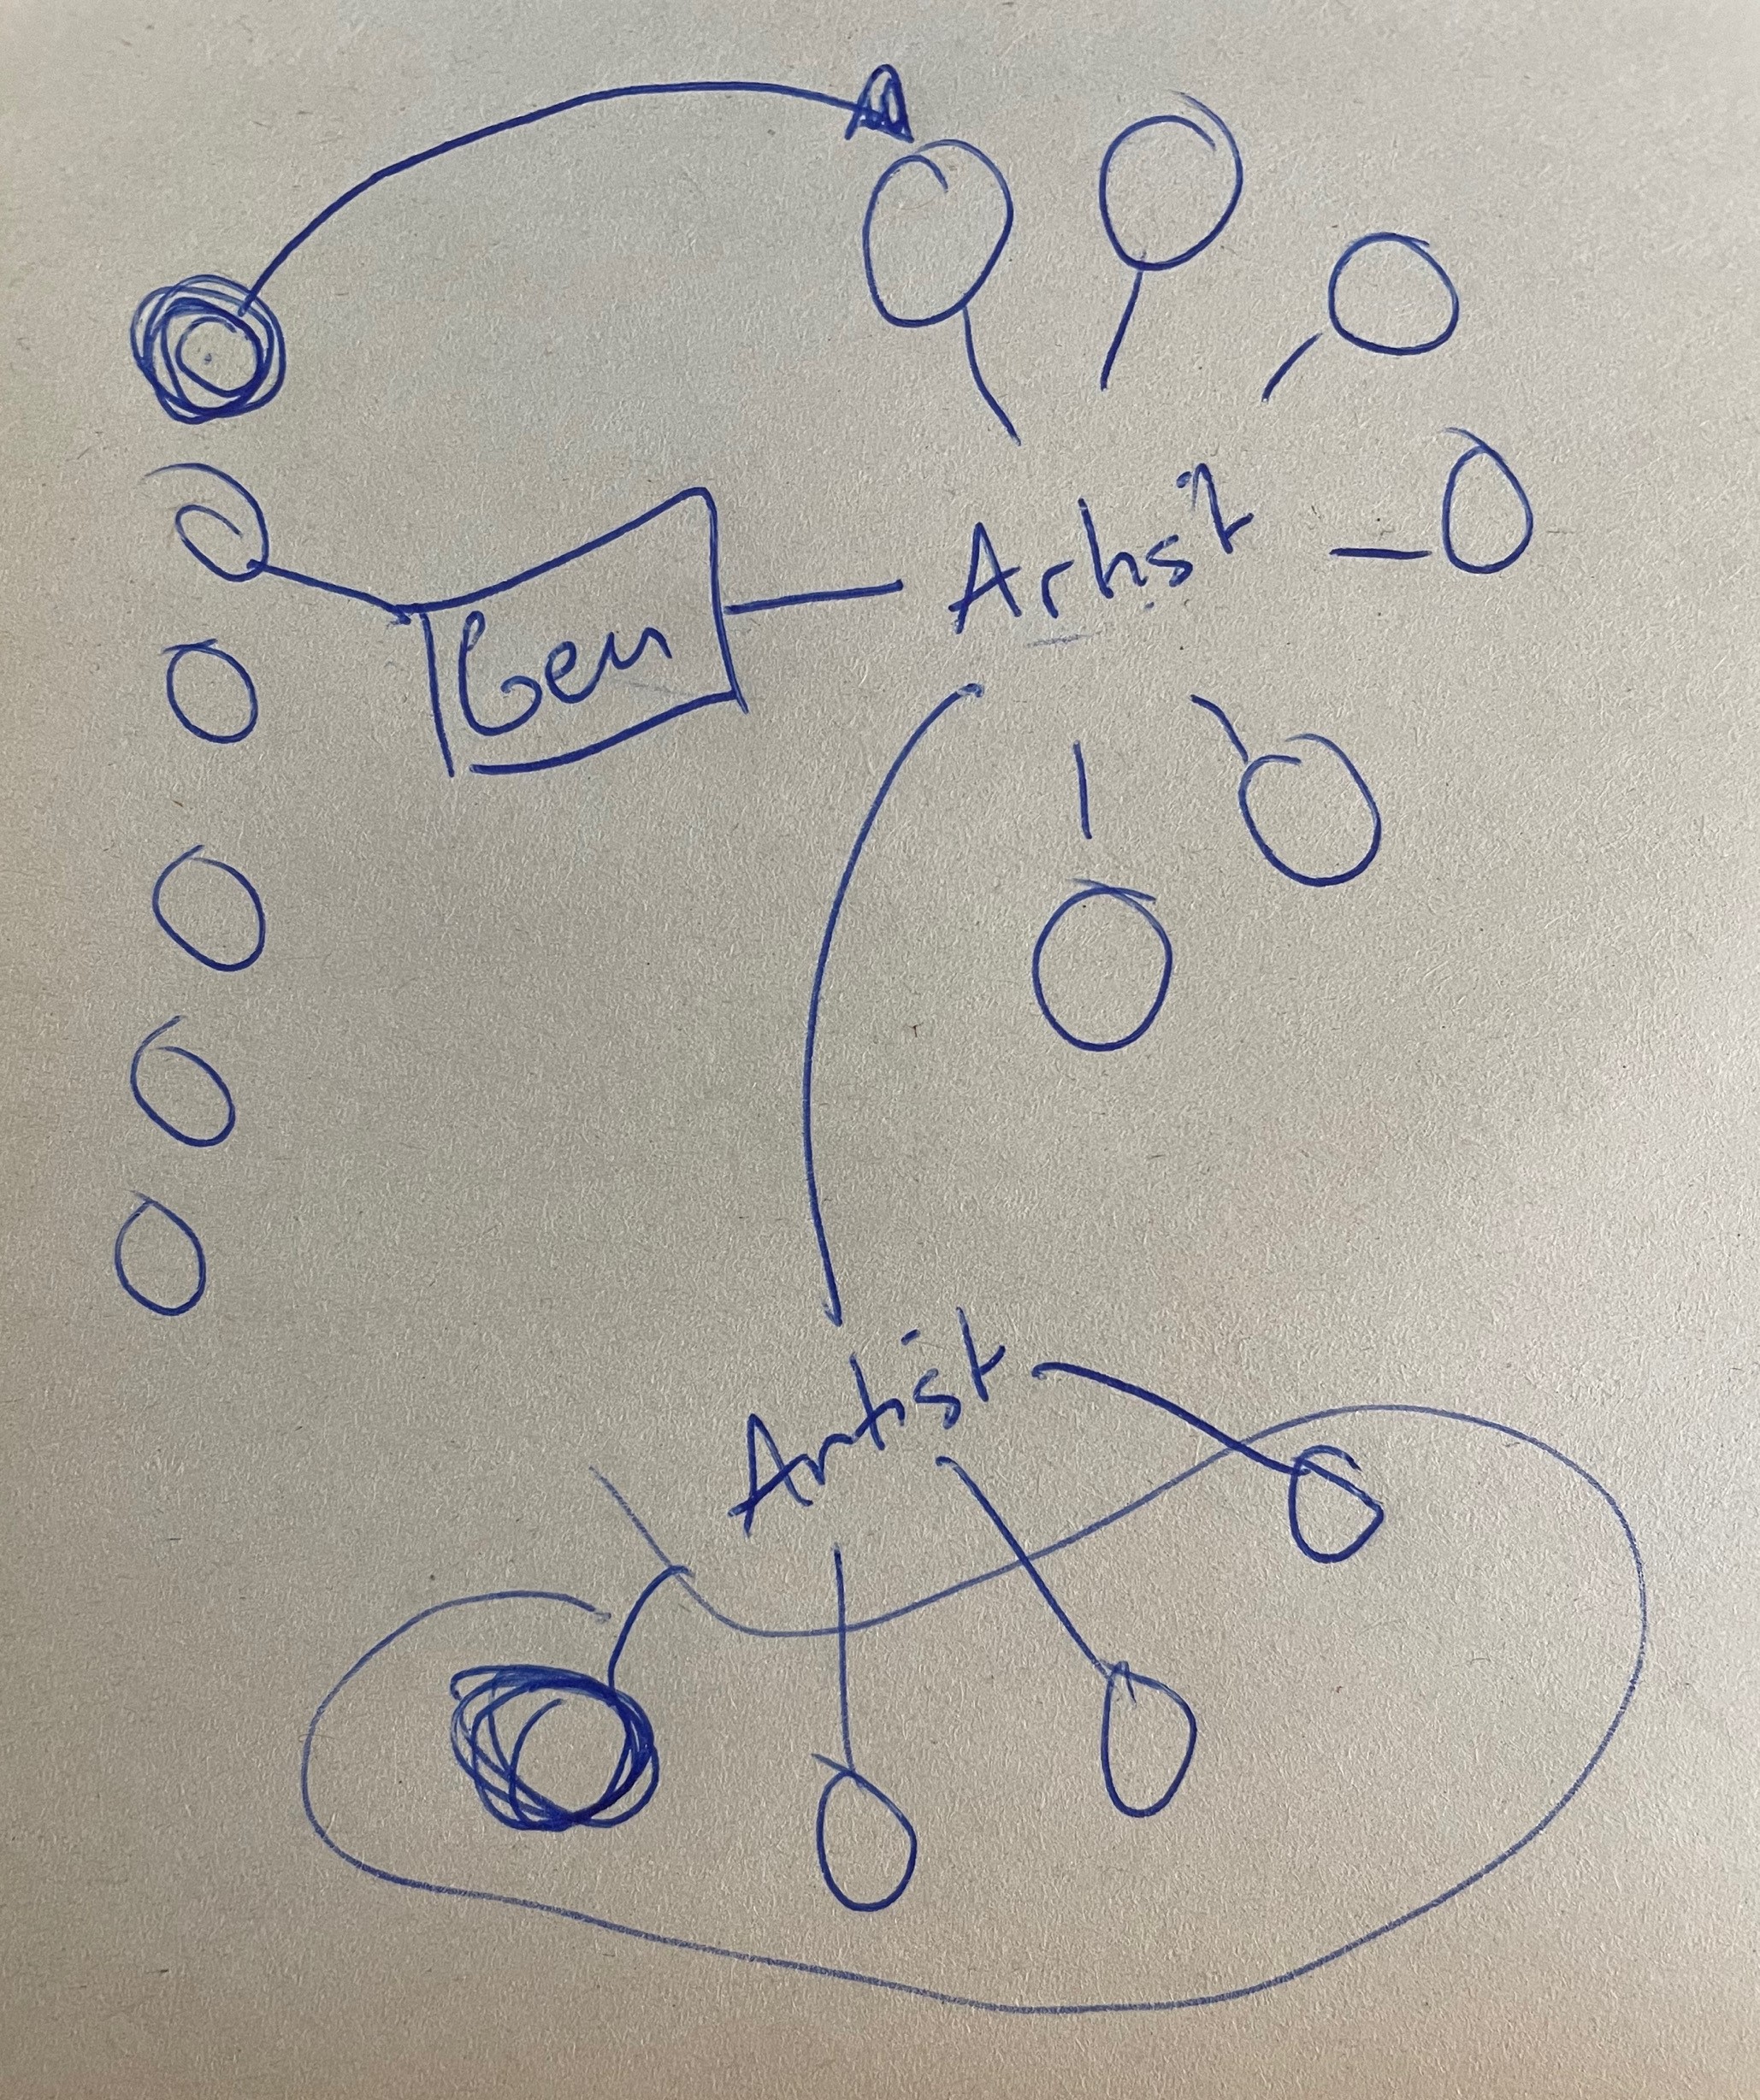 Gen
Artist
Artist